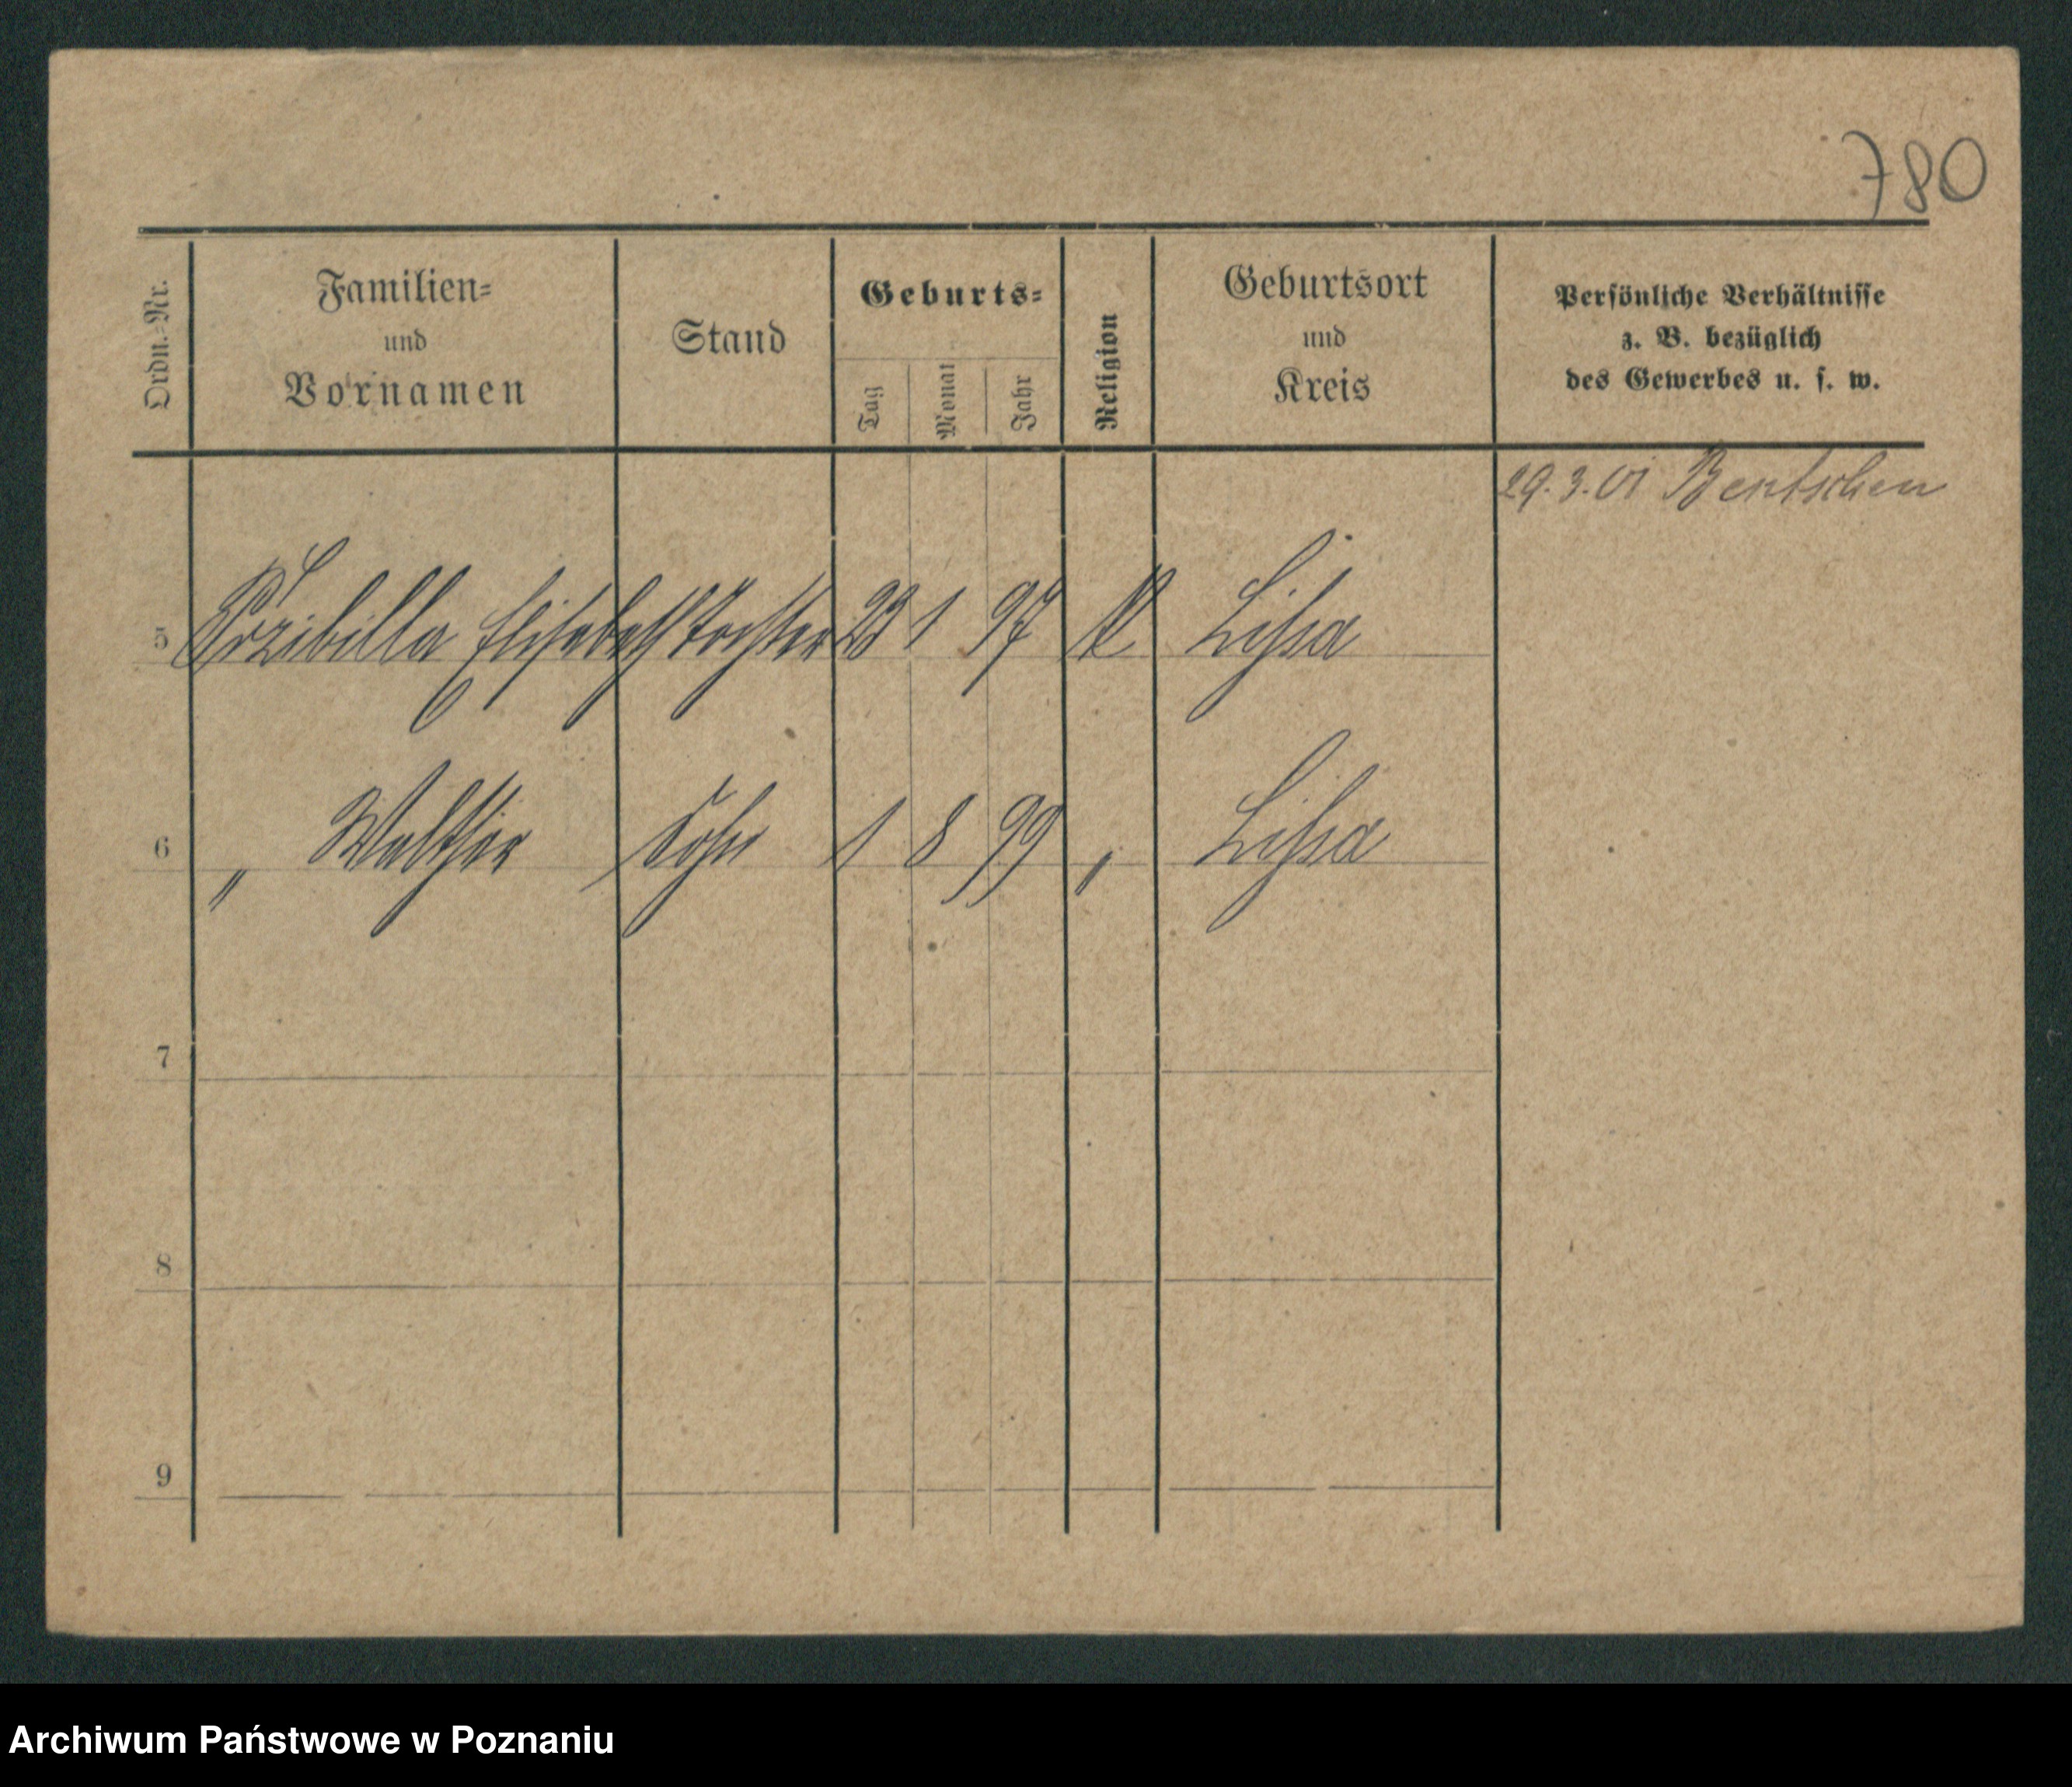 780
Ordn.-Nr.
Familien-
und
Vornamen
Stand
Geburts-
Tag
Monat
Jahr
Religion
Geburtsort
und
Kreis
Persönliche Verhältnisse
z. B. bezüglich
des Gewerbes u. s. w.
29.3.01 Bentschen
5 Przibilla Elisabeth Tochter 23 1 97 K Lissa
6 " Walther Sohn 1 8 99 " Lissa
7
8
9
Archiwum Państwowe w Poznaniu